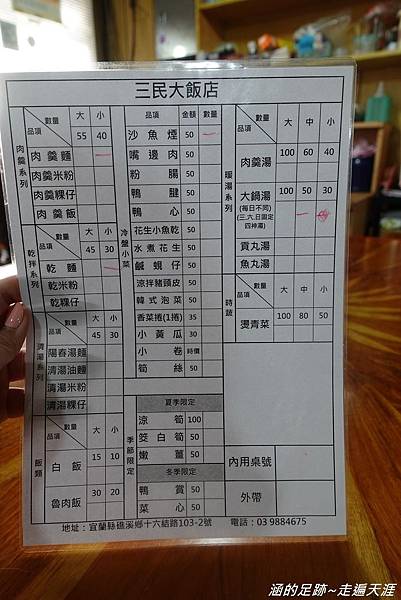 三民大飯店
肉羹系列
數量 大 小
品項 55 40
肉羹麵 一
肉羹米粉
肉羹粿仔
肉羹飯
乾拌系列
數量 大 小
品項 45 30
乾麵 一
乾米粉
乾粿仔
清湯系列
數量 大 小
品項 45 30
陽春湯麵
清湯油麵
清湯米粉
清湯粿仔
飯類
數量 大 小
品項
白飯 15 10
魯肉飯 30 20
冷盤小菜
品項 金額 數量
沙魚煙 50 一
嘴邊肉 50
粉腸 50
鴨腱 50
鴨心 50
花生小魚乾 50
水煮花生 50
鹹蜆仔 50
涼拌豬頭皮 50
韓式泡菜 50
香菜捲(1捲) 35
小黃瓜 30
小卷 時價
筍絲 50
季節限定
夏季限定
涼筍 100
筊白筍 50
嫩薑 50
冬季限定
鴨賞 50
菜心 50
暖湯系列
數量 大 中 小
品項
肉羹湯 100 60 40
大鍋湯 100 50 30
(每日不同)
(三.六.日固定
四神湯)
一
貢丸湯
魚丸湯
時蔬
數量 大 中 小
品項
燙青菜 100 80 50
內用桌號
外帶
地址：宜蘭縣礁溪鄉十六結路103-2號 電話：03 9884675
涵的足跡~走遍天涯